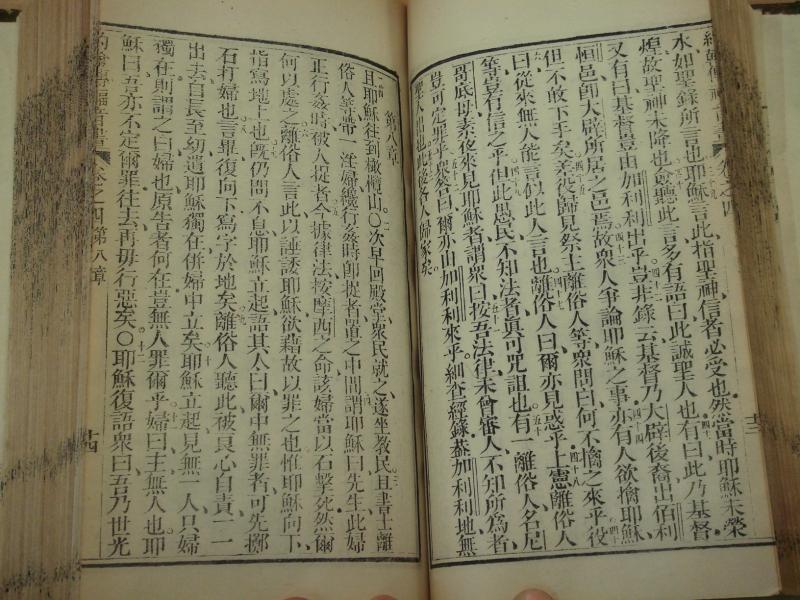 水如聖錄所言也耶穌言此指聖神信者必受也然當時耶穌未榮
煌故聖神未降也愈聽此言多有語曰此誠聖人也有曰此乃基督
又有曰基督豈由加利利出乎豈非錄云基督乃大辟後裔出伯利
恒邑師大辟所居之邑焉故衆人爭論耶穌之事亦有人欲擒耶穌
但不敢下手矣差役歸見祭主離俗人等衆問曰何不擒之來乎役
曰從來無人能言似此人言也離俗人曰爾亦見惑乎上憲離俗人
等豈有信之乎但此愚民不知法者眞可咒詛也有一離俗人名尼
哥底母素夜來見耶穌者謂衆曰按吾法律未曾審人不知所爲者
豈可定罪乎衆答曰爾亦由加利利來乎細查經錄葢加利利地無
聖人出也此後各人歸家矣
第八章
且耶穌往到橄欖山〇次早回殿堂衆民就之遂坐敎民且書士離
俗人等帶一淫婦纔行姦時卽捉者置之中間謂耶穌曰先生此婦
正行姦時被人捉者今據律法按摩西之命該婦當以石擊死然爾
何以處之離俗人言此以誘耶穌欲藉故以罪之也惟耶穌向下
指寫地上也旣仍問不息耶穌立起語其人曰爾中無罪者可先擲
石打婦也言畢復向下寫字於地矣離俗人聽此被良心自責一一
出去自長至幼遺耶穌獨在併婦中立矣耶穌立起見無一人只婦
獨在則謂之曰婦也原告者何在豈無人罪爾乎婦曰主無人也耶
穌曰吾亦不定爾罪往去再毋行惡矣〇耶穌復語衆曰吾乃世光
卷之四第八章